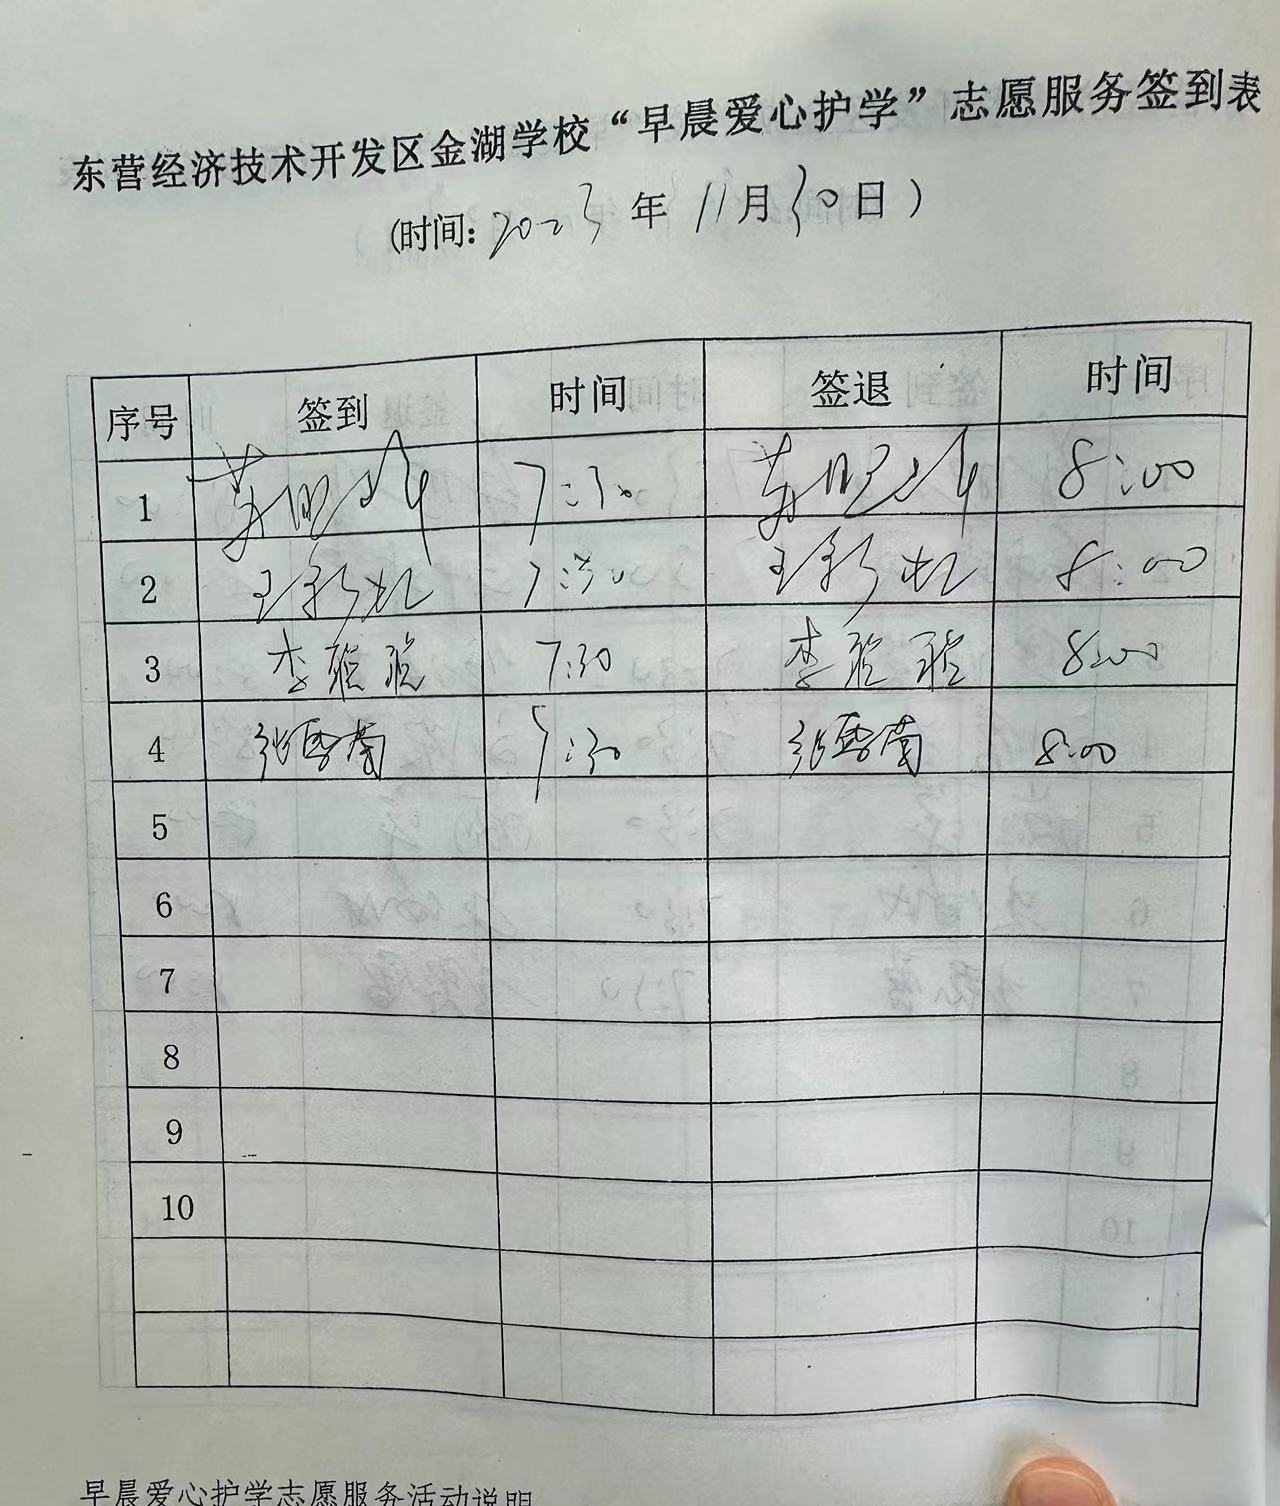 东营经济技术开发区金湖学校“早晨爱心护学”志愿服务签到表
(时间: 2023 年 11 月 30 日 )
序号 签到 时间 签退 时间
1 7:30 8:00
2 王彩虹 7:30 王彩虹 8:00
3 李聪聪 7:30 李聪聪 8:00
4 张雪菊 7:30 张雪菊 8:00
5
6
7
8
9
10
早晨爱心护学志愿服务活动说明